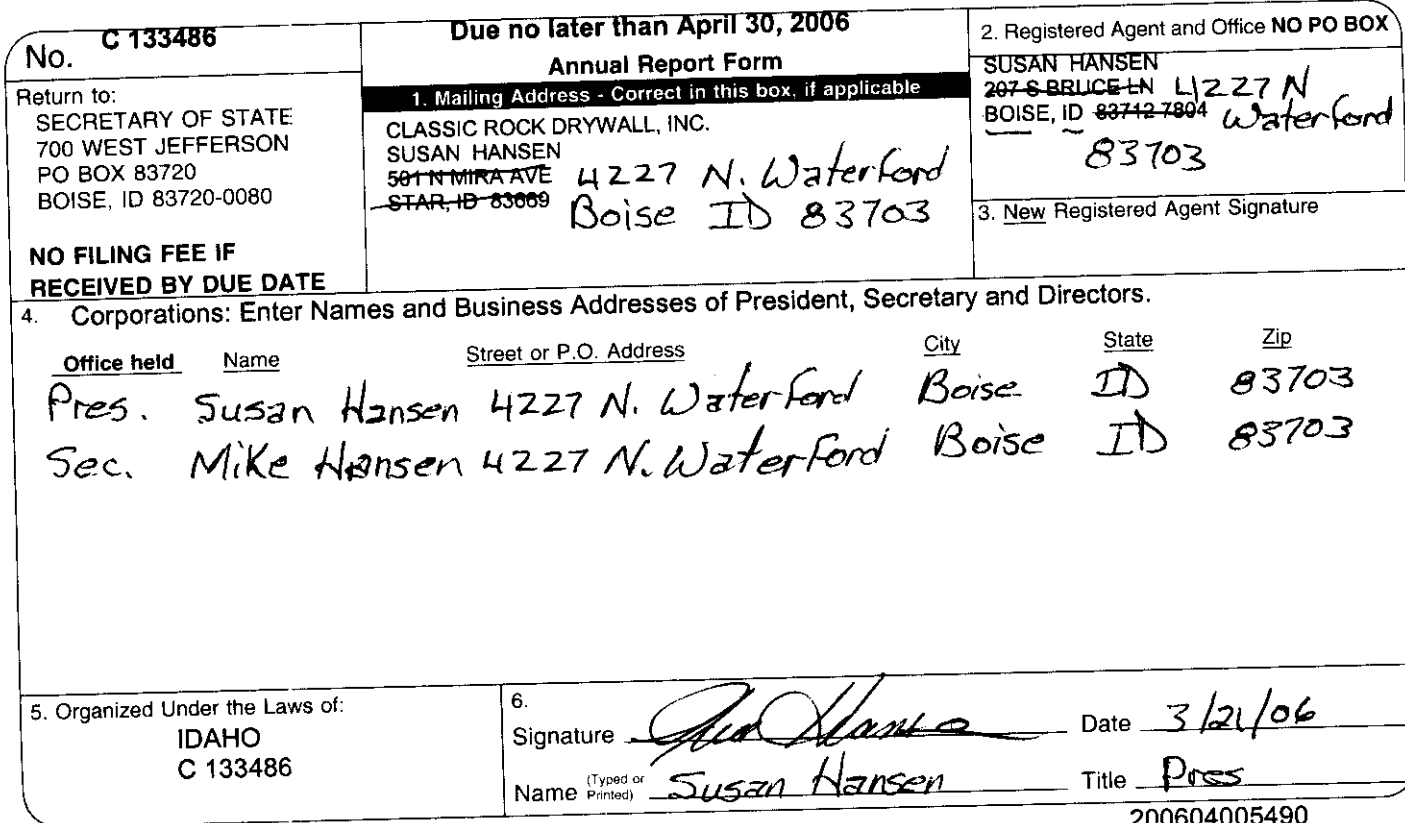 No. C 133486
Return to:
SECRETARY OF STATE
700 WEST JEFFERSON
PO BOX 83720
BOISE, ID 83720-0080
NO FILING FEE IF
RECEIVED BY DUE DATE
Due no later than April 30, 2006
Annual Report Form
1. Mailing Address - Correct in this box, if applicable
CLASSIC ROCK DRYWALL, INC.
SUSAN HANSEN
501 N MIRA AVE 4227 N. Waterford
STAR, ID 83669 Boise ID 83703
2. Registered Agent and Office NO PO BOX
SUSAN HANSEN
207 S BRUCE LN 4227 N
BOISE, ID 83712-7804 Waterford
83703
3. New Registered Agent Signature
4. Corporations: Enter Names and Business Addresses of President, Secretary and Directors.
Office held Name Street or P.O. Address City State Zip
Pres. Susan Hansen 4227 N. Waterford Boise ID 83703
Sec. Mike Hansen 4227 N. Waterford Boise ID 83703
5. Organized Under the Laws of:
IDAHO
C 133486
6.
Signature Susan Hansen Date 3/21/06
Name (Typed or Printed) Susan Hansen Title Pres
200604005490